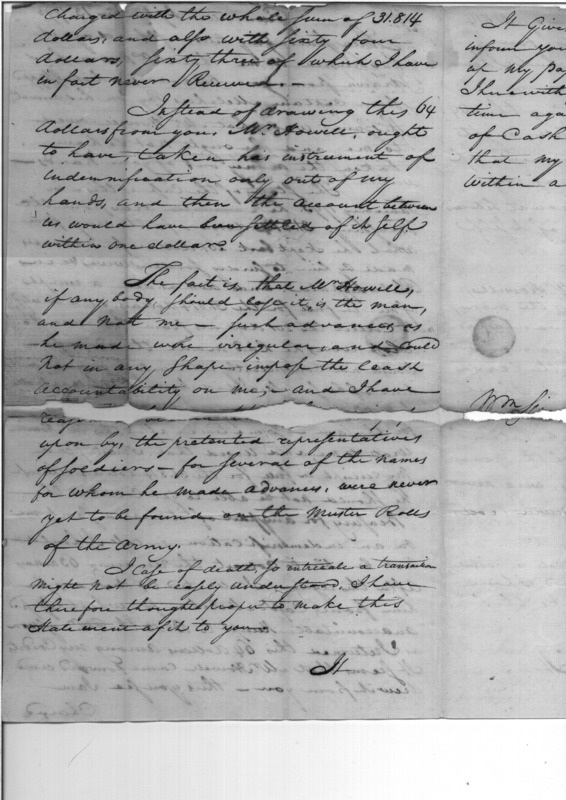 charged with the whole sum of 31.814
dollars, and also with sixty four
dollars, sixty three of which I have
in fact never Received.
Instead of drawing this 64
dollars from you, Mr Howell, ought
to have, taken his instrument of
indemnification only out of my
hands, and then the account between
us would have been settled of itself
within one dollar.
The fact is, that Mr Howell,
if any body, should lose it, is the man,
and not me — such advances as
he made were irregular, and could
not in any shape impose the least
accountability on me, and I have
upon by, the pretented representatives
of soldiers — for several of the names
for whom he made advances, were never
yet to be found on the Muster Rolls
of the army.
I Case of death, so intricate a transaction
might not be easily understood, I have
therefore thought proper to make this
Statement of it to you
It
It Give
inform you
of my pay
time aga
of Cash
that my
within a